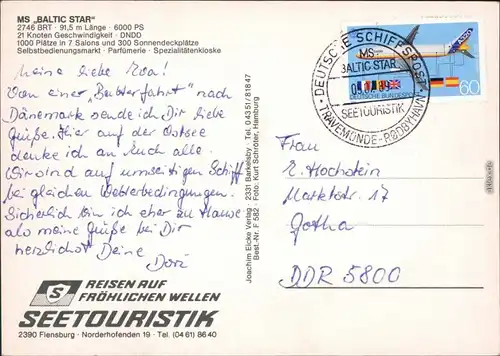 MS „BALTIC STAR"
2746 BRT · 91,5 m Länge · 6000 PS
21 Knoten Geschwindigkeit · DNDD
1000 Plätze in 7 Salons und 300 Sonnendeckplätze
Selbstbedienungsmarkt · Parfümerie · Spezialitätenkioske
Meine liebe
Von einer „Butterfahrt" nach
Dänemark sende ich Dir liebe
Grüße. Hier auf der Ostsee
denke ich an Euch alle.
Wir sind auf umseitigen Schiff
bei gleichen Wetterbedingungen.
Sicherlich bin ich eher zu Hause
als meine Grüße bei Dir
herzlichst Deine
REISEN AUF
FRÖHLICHEN WELLEN
SEETOURISTIK
2390 Flensburg · Norderhofenden 19 · Tel. (04 61) 86 40
Joachim Eicke Verlag · 2331 Barkelsby · Tel. 0 43 51 / 8 18 47
Best.-Nr. F 582 · Foto: Kurt Schröter, Hamburg
DEUTSCHE SCHIFFSPOST
MS
BALTIC STAR
SEETOURISTIK
TRAVEMÜNDE-RØDBYHAVN
DEUTSCHE BUNDESPOST
60
Frau
E. Hochstein
Marktstr. 17
Gotha
DDR 5800